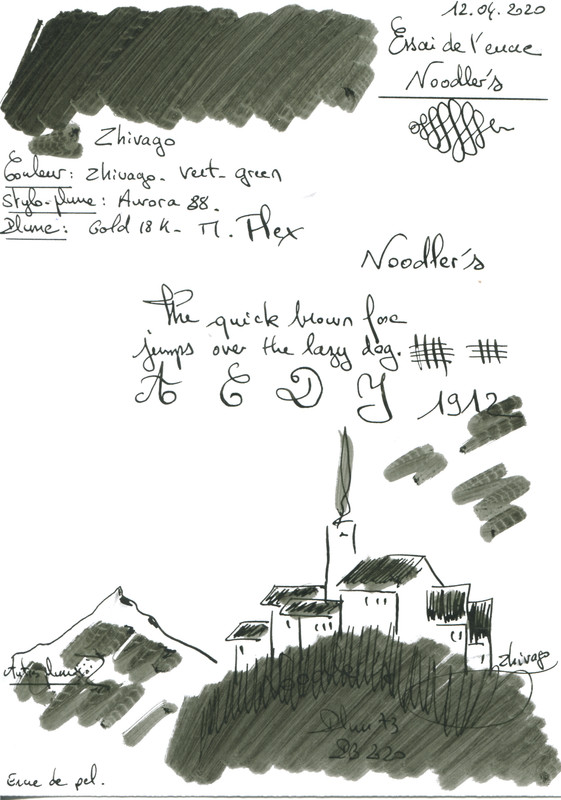 12.04.2020
Essai de l'encre
Noodler's
Zhivago
Couleur: Zhivago - vert - green
Stylo-plume: Aurora 88.
Plume: Gold 18 K - M. Flex
Noodler's
The quick brown fox
jumps over the lazy dog.
A E D J 1912
Zhivago
Autres